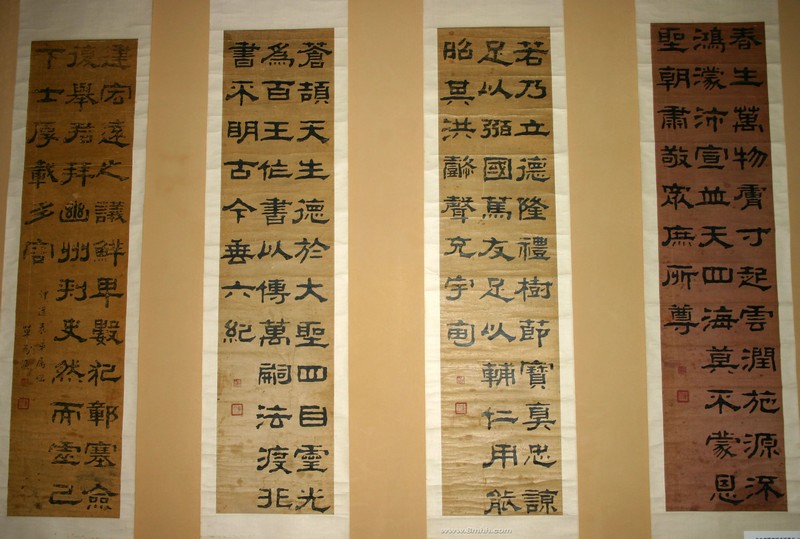 春生萬物膚寸起雲潤施源深
鴻濛沛宣並天四海莫不蒙恩
聖朝肅敬眾庶所尊
若乃立德隆禮樹節寶真忠諒
足以弼國篤友足以輔仁用能
昭其洪懿聲充宇宙
蒼頡天生德於大聖四目靈光
為百王作書以傳萬嗣法渡非
書不明古今垂六紀
建宏遠之議鮮卑數犯鄣塞僉
復舉君拜幽州刺史然而虛己
下士厚載多容